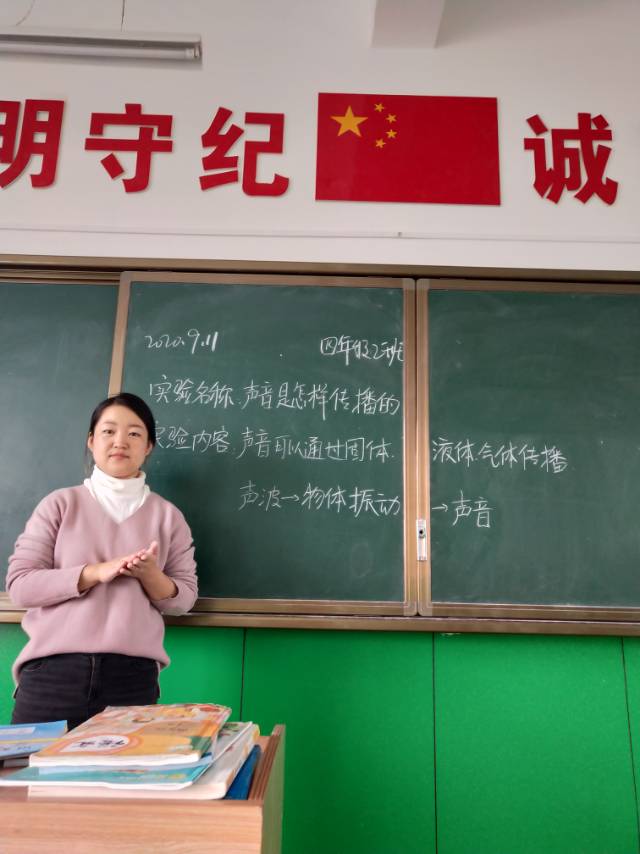 明守纪 诚
2020.9.11 四年级2班
实验名称:声音是怎样传播的
实验内容:声音可以通过固体、液体、气体传播
声波→物体振动→声音